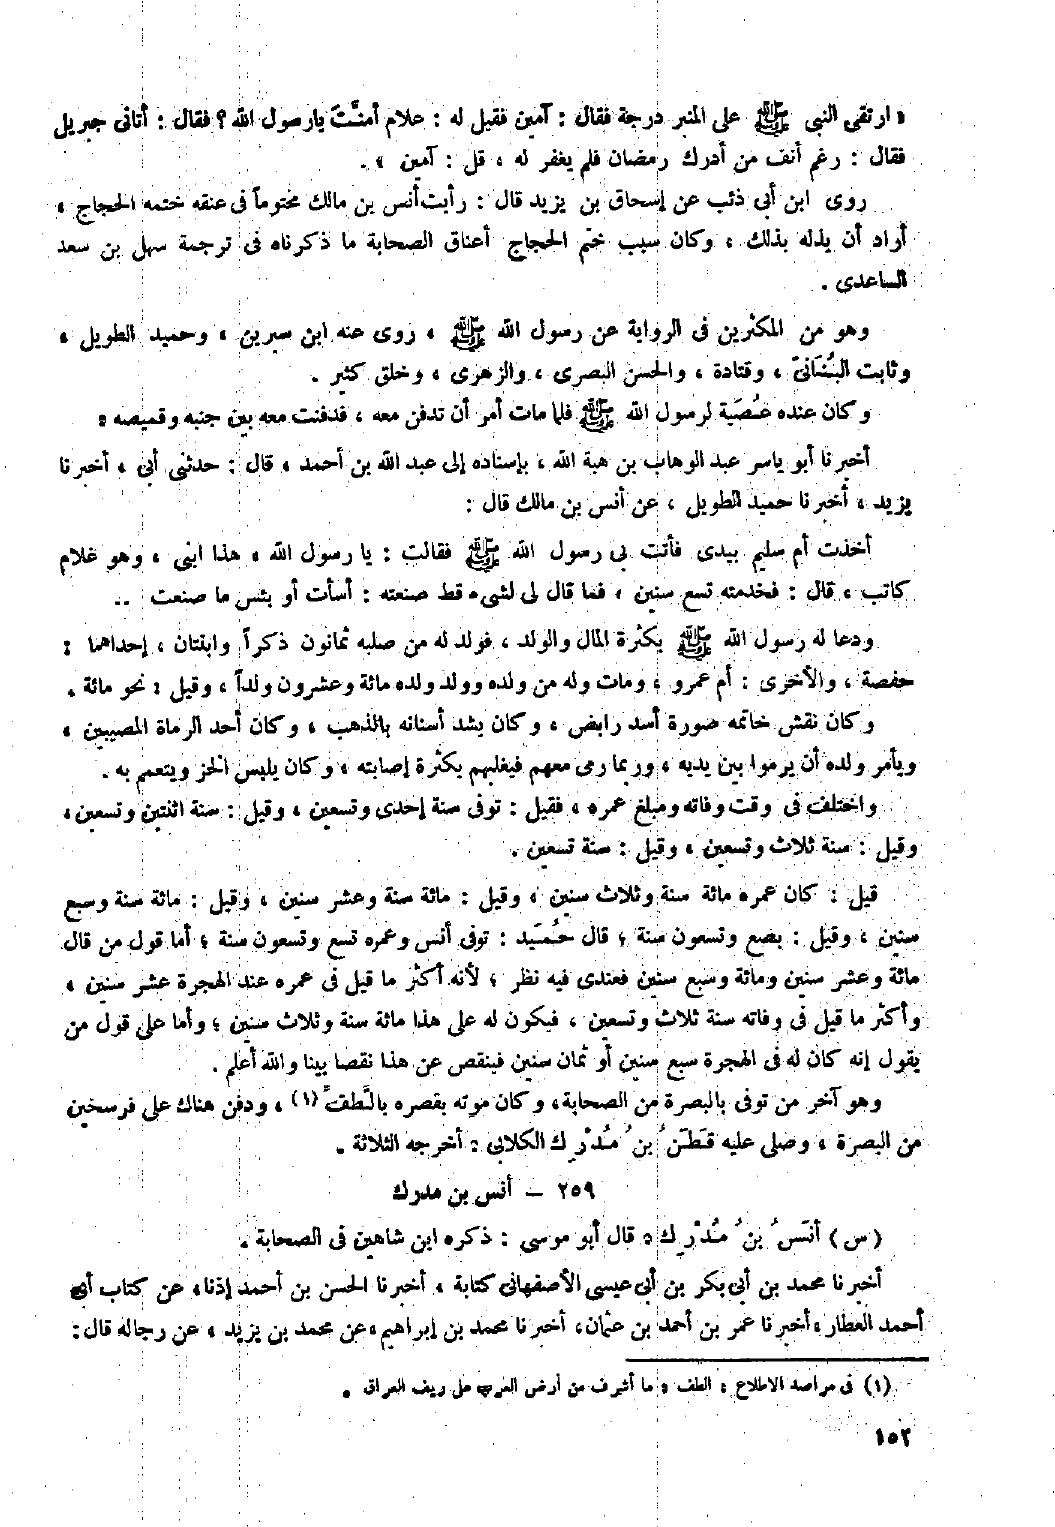 « ارتقى النبى ﷺ على المنبر درجة فقال : آمين فقيل له : علام أمنَّتَ يا رسول الله ؟ فقال : أتانى جبريل
فقال : رغم أنف من أدرك رمضان فلم يغفر له ، قل : آمين » .
روى ابن أبى ذئب عن إسحاق بن يزيد قال : رأيت أنس بن مالك مختوماً فى عنقه ختمه الحجاج ،
أراد أن يذله بذلك ، وكان سبب ختم الحجاج أعناق الصحابة ما ذكرناه فى ترجمة سهل بن سعد
الساعدى .
وهو من المكثرين فى الرواية عن رسول الله ﷺ ، روى عنه ابن سيرين ، وحميد الطويل ،
وثابت البُنَانىّ ، وقتادة ، والحسن البصرى ، والزهرى ، وخلق كثير .
وكان عنده عُصَيَّة لرسول الله ﷺ فلما مات أمر أن تدفن معه ، فدفنت معه بين جنبه وقميصه .
أخبرنا أبو ياسر عبد الوهاب بن هبة الله ، بإسناده إلى عبد الله بن أحمد ، قال : حدثنى أبى ، أخبرنا
يزيد ، أخبرنا حميد الطويل ، عن أنس بن مالك قال :
أخذت أم سليم بيدى فأتت بى رسول الله ﷺ فقالت : يا رسول الله ، هذا ابنى ، وهو غلام
كاتب ، قال : فخدمته تسع سنين ، فما قال لى لشىء قط صنعته : أسأت أو بئس ما صنعت ..
ودعا له رسول الله ﷺ بكثرة المال والولد ، فولد له من صلبه ثمانون ذكراً وابنتان ، إحداهما :
حفصة ، والأخرى : أم عمرو ، ومات وله من ولده وولد ولده مائة وعشرون ولداً ، وقيل : نحو مائة .
وكان نقش خاتمه صورة أسد رابض ، وكان يشد أسنانه بالذهب ، وكان أحد الرماة المصيبين ،
ويأمر ولده أن يرموا بين يديه ، وربما رمى معهم فيغلبهم بكثرة إصابته ، وكان يلبس الخز ويتعمم به .
واختلف فى وقت وفاته ومبلغ عمره ، فقيل : توفى سنة إحدى وتسعين ، وقيل : سنة اثنتين وتسعين ،
وقيل : سنة ثلاث وتسعين ، وقيل : سنة تسعين .
قيل : كان عمره مائة سنة وثلاث سنين ، وقيل : مائة سنة وعشر سنين ، وقيل : مائة سنة وسبع
سنين ، وقيل : بضع وتسعون سنة ؛ قال حُمَيد : توفى أنس وعمره تسع وتسعون سنة ؛ أما قول من قال
مائة وعشر سنين ومائة وسبع سنين فعندى فيه نظر ؛ لأنه أكثر ما قيل فى عمره عند الهجرة عشر سنين ،
وأكثر ما قيل فى وفاته سنة ثلاث وتسعين ، فيكون له على هذا مائة سنة وثلاث سنين ؛ وأما على قول من
يقول إنه كان له فى الهجرة سبع سنين أو ثمان سنين فينقص عن هذا نقصا بينا والله أعلم .
وهو آخر من توفى بالبصرة من الصحابة ، وكان موته بقصره بالطَّفّ (١) ، ودفن هناك على فرسخين
من البصرة ، وصلى عليه قَطَنُ بنُ مُدْرِك الكلابى : أخرجه الثلاثة .
٢٥٩ – أنس بن مدرك
(س) أنَسُ بنُ مُدْرِك . قال أبو موسى : ذكره ابن شاهين فى الصحابة .
أخبرنا محمد بن أبى بكر بن أبى عيسى الأصفهانى كتابة ، أخبرنا الحسن بن أحمد إذنا ، عن كتاب أبى
أحمد العطار ، أخبرنا عمر بن أحمد بن عثمان ، أخبرنا محمد بن إبراهيم ، عن محمد بن يزيد ، عن رجاله قال :
(١) فى مراصد الاطلاع : الطف : ما أشرف من أرض العرب على ريف العراق .
١٥٢